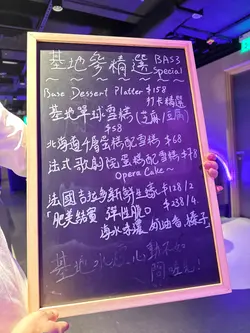 基地參精選 BAS3
Special
Base Dessert Platter $158
打卡精選
基地單球雪糕(芝麻/豆腐)
$58
北海道千層蛋糕配雪糕 $68
法式歌劇院蛋糕配雪糕 $78
Opera Cake~
法國吉拉多新鮮生蠔 $128/2
「肥美結實 彈性肌」 $238/4
海水味濃 奶油香、榛子
基地 心動不如